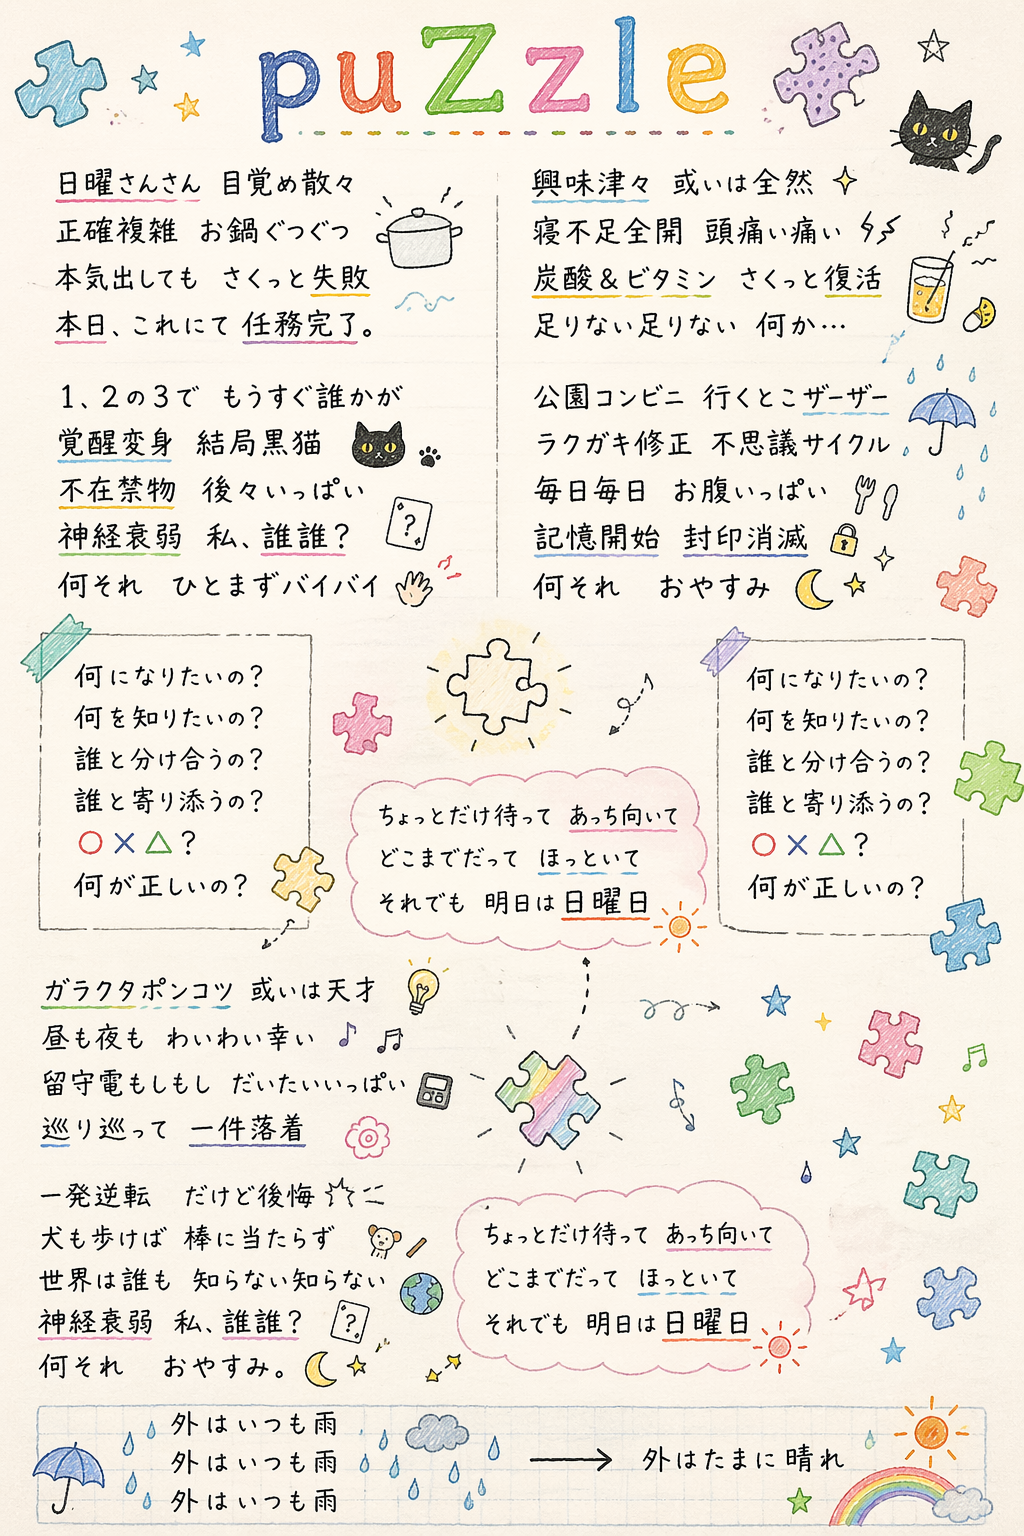 puzzle
日曜さんさん 目覚め散々
正確複雑 お鍋ぐつぐつ
本気出しても さくっと失敗
本日、これにて 任務完了。
1、2の3で もうすぐ誰かが
覚醒変身 結局黒猫
不在禁物 後々いっぱい
神経衰弱 私、誰誰?
?
何それ ひとまずバイバイ
興味津々 或いは全然
寝不足全開 頭痛い痛い
炭酸&ビタミン さくっと復活
足りない足りない 何か…
公園コンビニ 行くとこザーザー
ラクガキ修正 不思議サイクル
毎日毎日 お腹いっぱい
記憶開始 封印消滅
何それ おやすみ
何になりたいの?
何を知りたいの?
誰と分け合うの?
誰と寄り添うの?
○×△?
何が正しいの?
ちょっとだけ待って あっち向いて
どこまでだって ほっといて
それでも 明日は日曜日
何になりたいの?
何を知りたいの?
誰と分け合うの?
誰と寄り添うの?
○×△?
何が正しいの?
ガラクタポンコツ 或いは天才
昼も夜も わいわい幸い
留守電もしもし だいたいいっぱい
巡り巡って 一件落着
一発逆転 だけど後悔
犬も歩けば 棒に当たらず
世界は誰も 知らない知らない
神経衰弱 私、誰誰?
?
何それ おやすみ。
ちょっとだけ待って あっち向いて
どこまでだって ほっといて
それでも 明日は日曜日
外はいつも雨
外はいつも雨
外はいつも雨
外はたまに晴れ